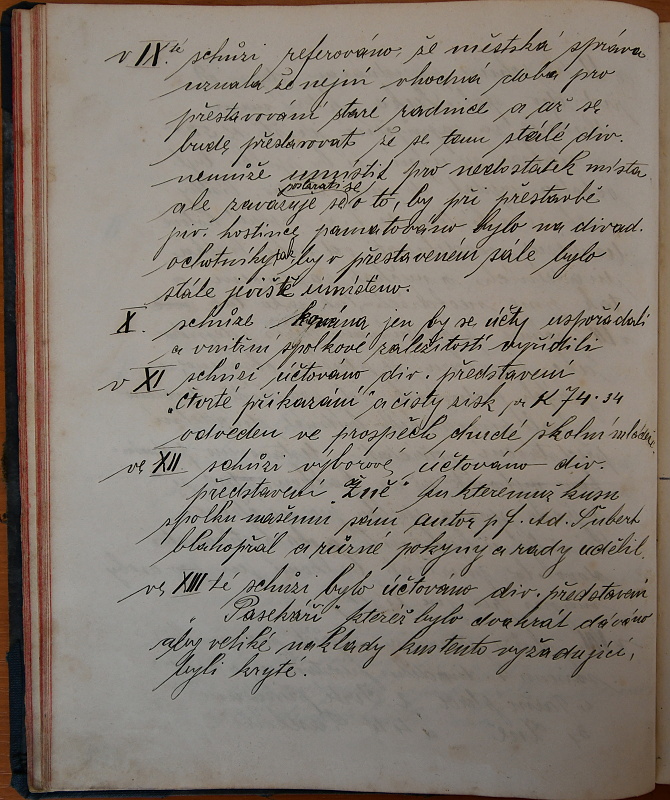 v IX.té schůzi referováno, že městská správa
uznala že nejní vhodná doba pro
přestavování staré radnice a až se
bude přestavovat že se tam stálé div.
nemůže umístit pro nedostatek místa
postarati se
ale zavazuje se o to, by při přestavbě
piv. hostince pamatováno bylo na divad.
ochotníky tak, by v přestaveném sále bylo
stále jeviště umístěno.
X. schůze konána jen by se účty uspořádali
a vnitřní spolkové záležitosti vyřídili
v XI schůzi účtováno div. představení
"čtvrté přikázání" a čistý zisk pr K 74.34
odveden ve prospěch chudé školní mládeže.
ve XII. schůzi výborové účtováno div.
představení "Žně" ku kterémuž kusu
spolku našemu sám autor p. f. Ad. Šubert
blahopřál a různé pokyny a rady udělil.
ve XIII té schůzi bylo účtováno div. představení
"Pasekáři" kteréž bylo dvakrát dáváno
aby veliké náklady kus tento vyžadující,
byli kryté.